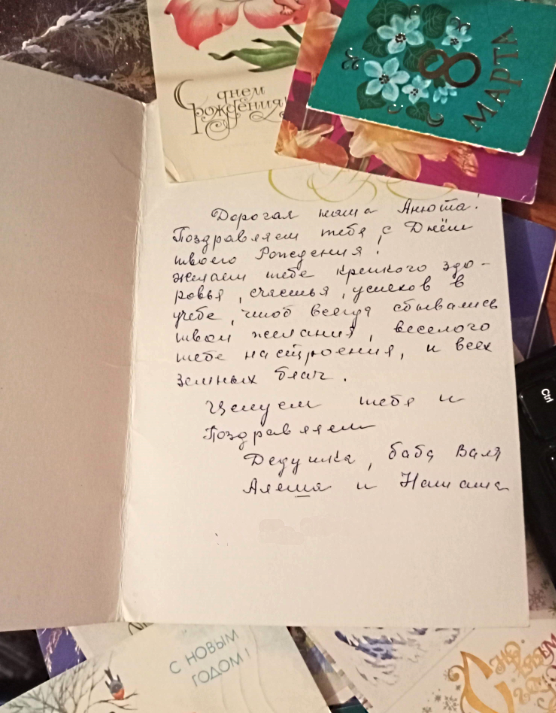 С днем
рождения!
8
МАРТА
Дорогая наша Анюта!
Поздравляем тебя с Днём
твоего Рождения!
желаем тебе крепкого здо-
ровья, счастья, успехов в
учебе, чтоб всегда сбывались
твои желания, веселого
тебе настроения, и всех
земных благ.
Целуем тебя и
Поздравляем
Дедушка, баба Валя
Алеша и Наташа
Ctrl
С НОВЫМ
ГОДОМ!